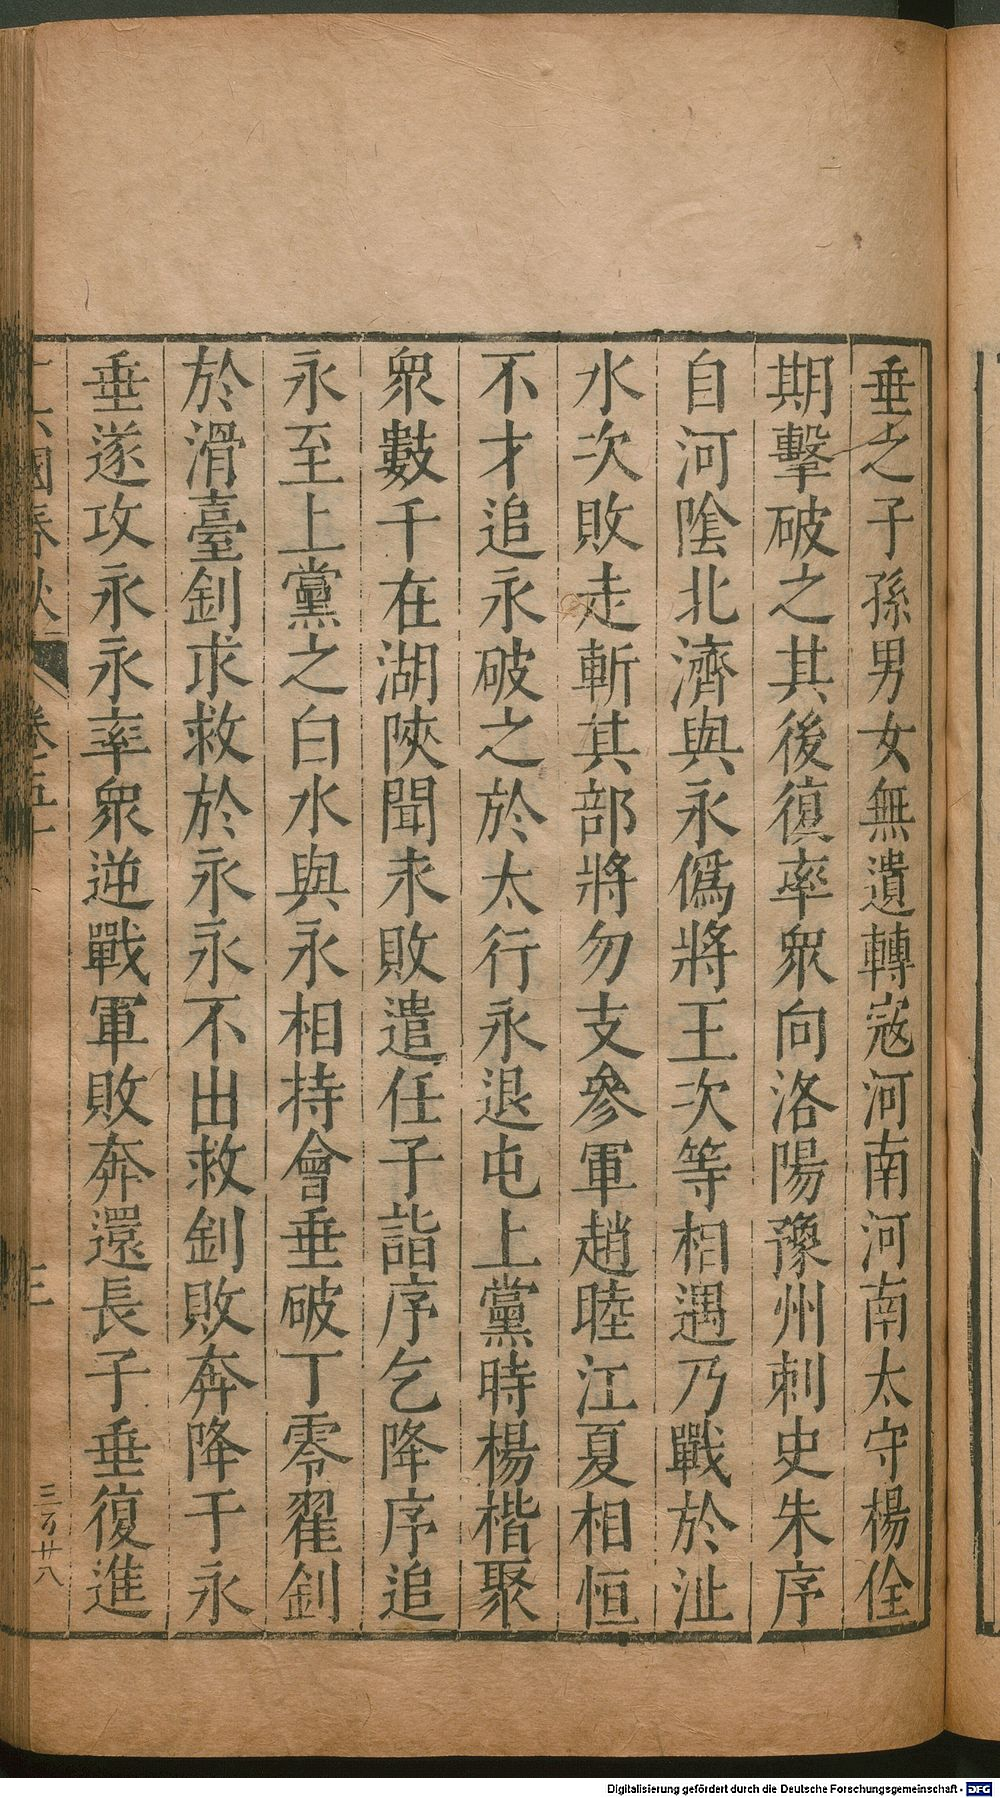 垂之子孫男女無遺轉宼河南河南太守楊佺
期擊破之其後復率衆向洛陽豫州刺史朱序
自河陰北濟與永僞將王次等相遇乃戰於沚
水次敗走斬其部將勿支參軍趙睦江夏相恒
不才追永破之於太行永退屯上黨時楊楷聚
衆數千在湖陝聞永敗遣任子詣序乞降序追
永至上黨之白水與永相持會垂破丁零翟釗
於滑臺釗求救於永永不出救釗敗奔降于永
垂遂攻永永率衆逆戰軍敗奔還長子垂復進
國春秋 卷五十 三 三百廿八
Digitalisierung gefördert durch die Deutsche Forschungsgemeinschaft - DFG